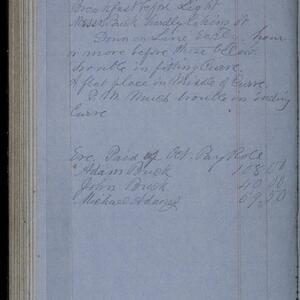 Breakfast before Light
hardly taking it
Down on Line Early hour
or more before those below
trouble in fitting Curve
A flat place in Middle of Curve
P.M. Much trouble in ending
Curve
Eve. Paid of Oct. Pay Role
Adam Buck 108.00
John Buck 40.00
Michael 69.50